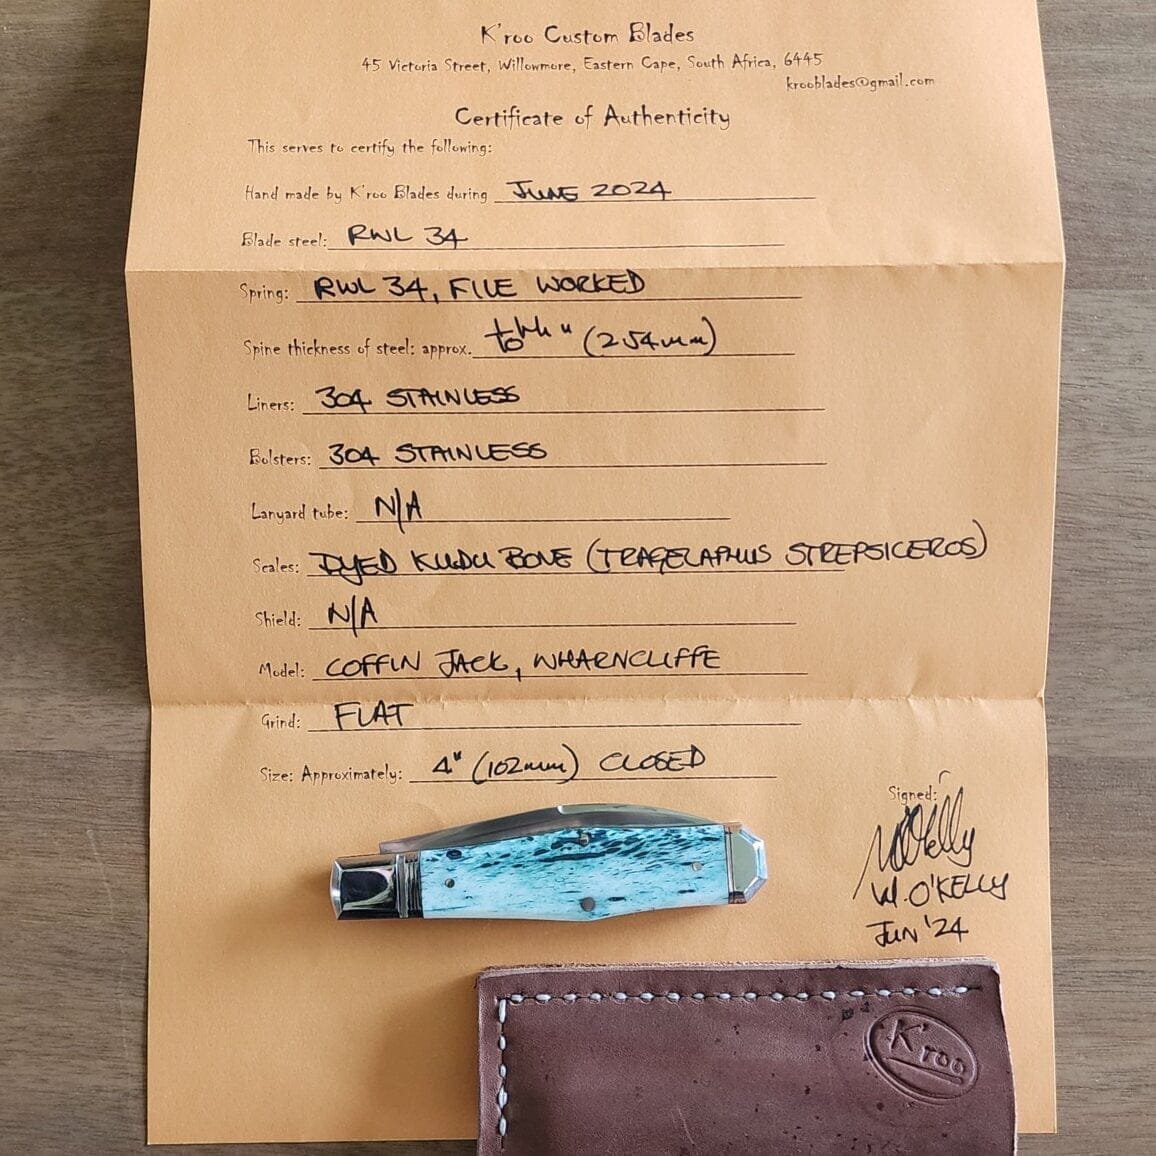 K'roo Custom Blades
45 Victoria Street, Willowmore, Eastern Cape, South Africa, 6445
krooblades@gmail.com
Certificate of Authenticity
This serves to certify the following:
Hand made by K'roo Blades during JUNE 2024
Blade steel: RWL 34
Spring: RWL 34, FILE WORKED
Spine thickness of steel: approx. (2.54mm)
Liners: 304 STAINLESS
Bolsters: 304 STAINLESS
Lanyard tube: N/A
Scales: DYED KUDU BONE (TRAGELAPHUS STREPSICEROS)
Shield: N/A
Model: COFFIN JACK, WHARNCLIFFE
Grind: FLAT
Size: Approximately: 4" (102mm) CLOSED
Signed:
W. O'KELLY
JUN '24
K'roo